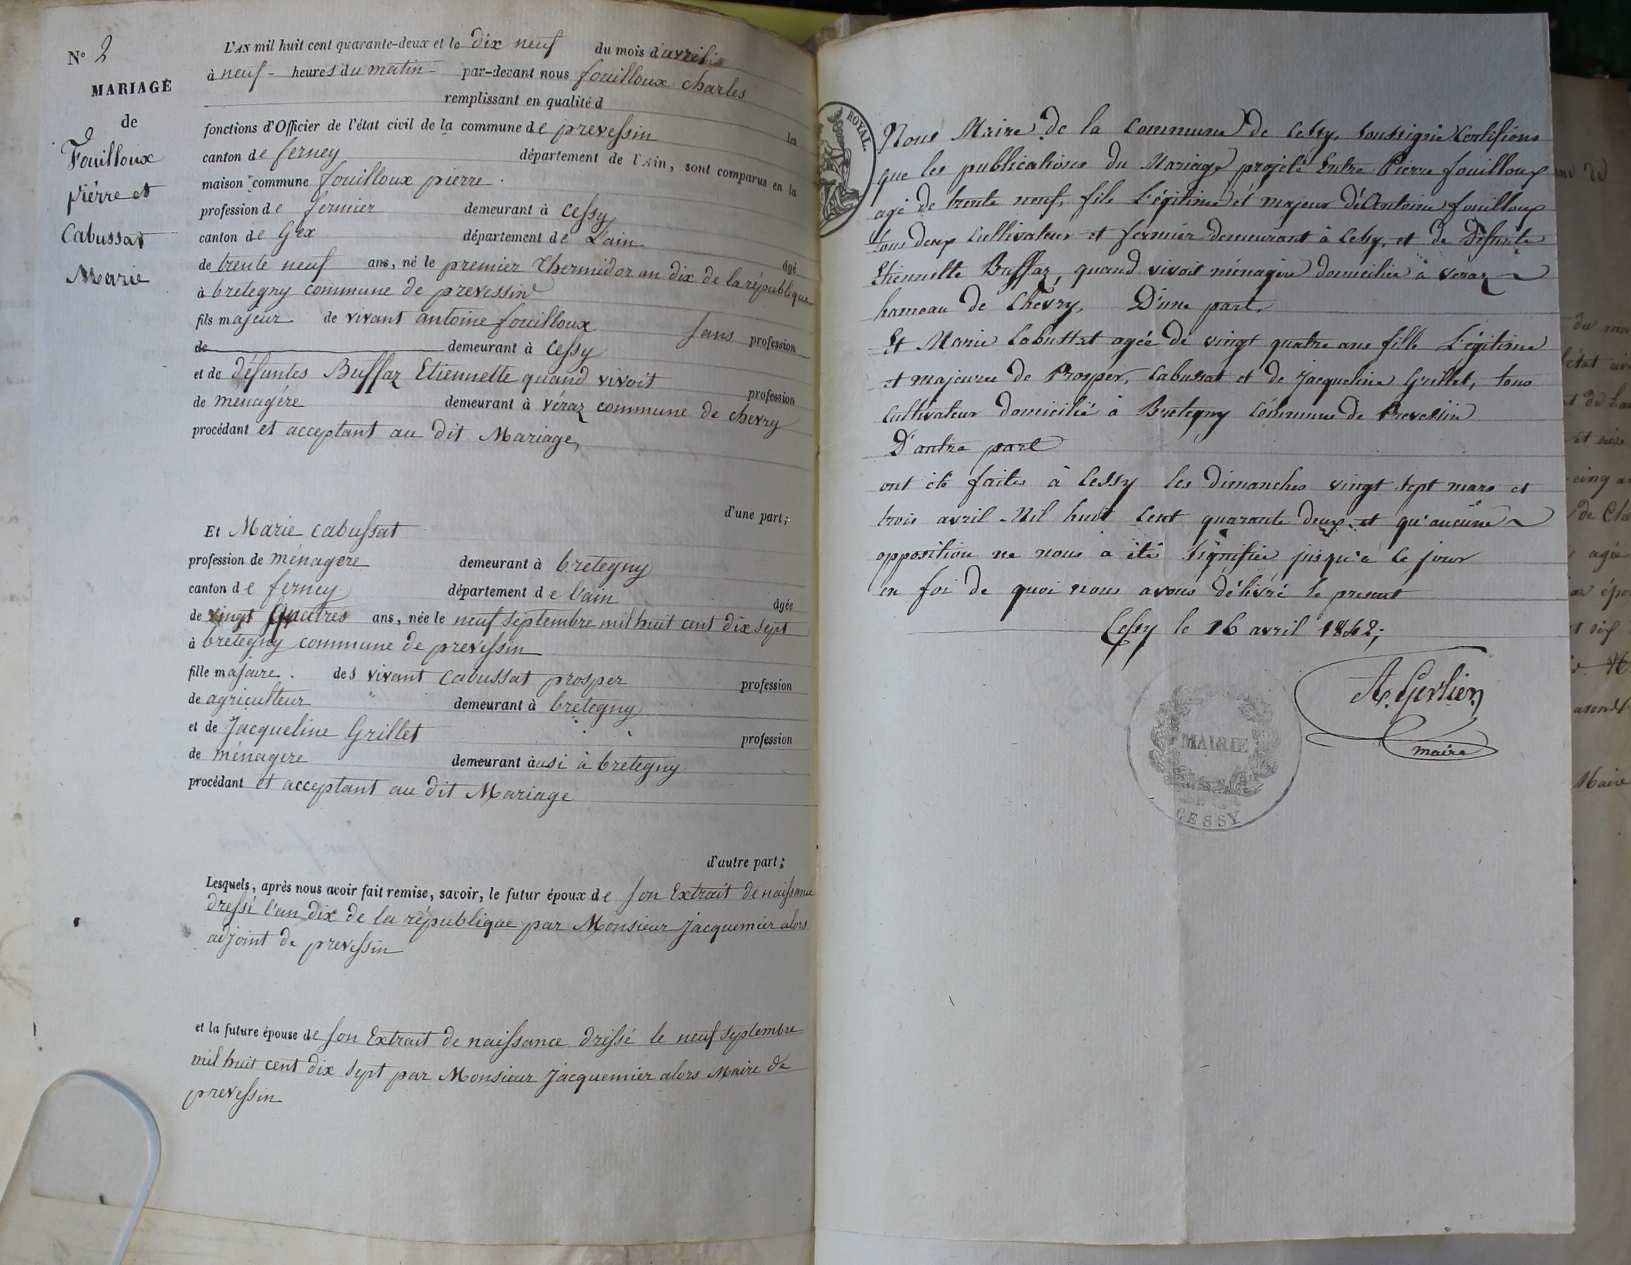 N° 2
MARIAGE
de
Fouilloux
pierre et
Cabussat
Marie
L'AN mil huit cent quarante-deux et le dix neuf du mois d'avril
à neuf - heures du matin par-devant nous fouilloux charles
remplissant en qualité d
fonctions d'Officier de l'état civil de la commune de prevessin les
canton de ferney département de l'Ain, sont comparus en la
maison commune fouilloux pierre.
profession de fermier demeurant à cessy
canton de Gex département de L'ain
âgé
de trente neuf ans, né le premier thermidor an dix de la république
à bretegny commune de prevessin
fils majeur de vivant antoine fouilloux sans profession
de demeurant à cessy
et de défuntes Buffaz Etiennette quand vivoit profession
de ménagére demeurant à véraz commune de chevry
procédant et acceptant au dit Mariage,
d'une part;
Et Marie cabussat
profession de ménagere demeurant à bretegny
canton de ferney département de l'ain
âgée
de vingt quatres ans, née le neuf septembre mil huit cent dix sept
à bretegny commune de prevessin
fille majeure. des vivant cabussat prosper profession
de agriculteur demeurant à bretegny
et de Jacqueline Grillet profession
de ménagere demeurant àusi à bretegny
procédant et acceptant au dit Mariage
d'autre part;
Lesquels, après nous avoir fait remise, savoir, le futur époux de son Extrait de naissance
dressé l'an dix de la république par Monsieur jacquemier alors
adjoint de prevessin
et la future épouse de son Extrait de naissance dressé le neuf septembre
mil huit cent dix sept par Monsieur jacquemier alors Maire de
prevessin
ROYAL.
Nous Maire de la commune de Cessy, soussigné Certifions
que les publications du Mariage projeté Entre Pierre fouilloux
agé de trente neuf, fils Légitime et majeur d'Antoine fouilloux
tous deux Cultivateur et fermier demeurant à Cessy, et de Défunte
Etiennette Buffaz, quand vivoit ménagère domiciliée à veraz
hameau de Chévry. D'une part.
Et Marie Cabussat agée de vingt quatre ans fille Légitime
et majeure de Prosper, Cabussat et de Jacqueline Grillet, tous
Cultivateur domicilié à Bretegny Commune de Prevessin
D'autre part
ont été faites à Cessy les dimanches vingt sept mars et
trois avril Mil huit Cent quarante deux, et qu'aucune
opposition ne nous à été signifiée jusqu'à ce jour
en foi de quoi nous avons délivré le présent
Cessy le 16 avril 1842;
A. Gerlier
maire
MAIRIE
CESSY